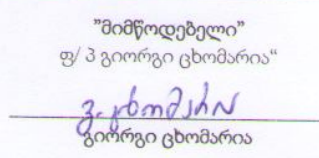 "მიმწოდებელი"
ფ/ პ გიორგი ცხომარია"
გ. ცხომარია
გიორგი ცხომარია